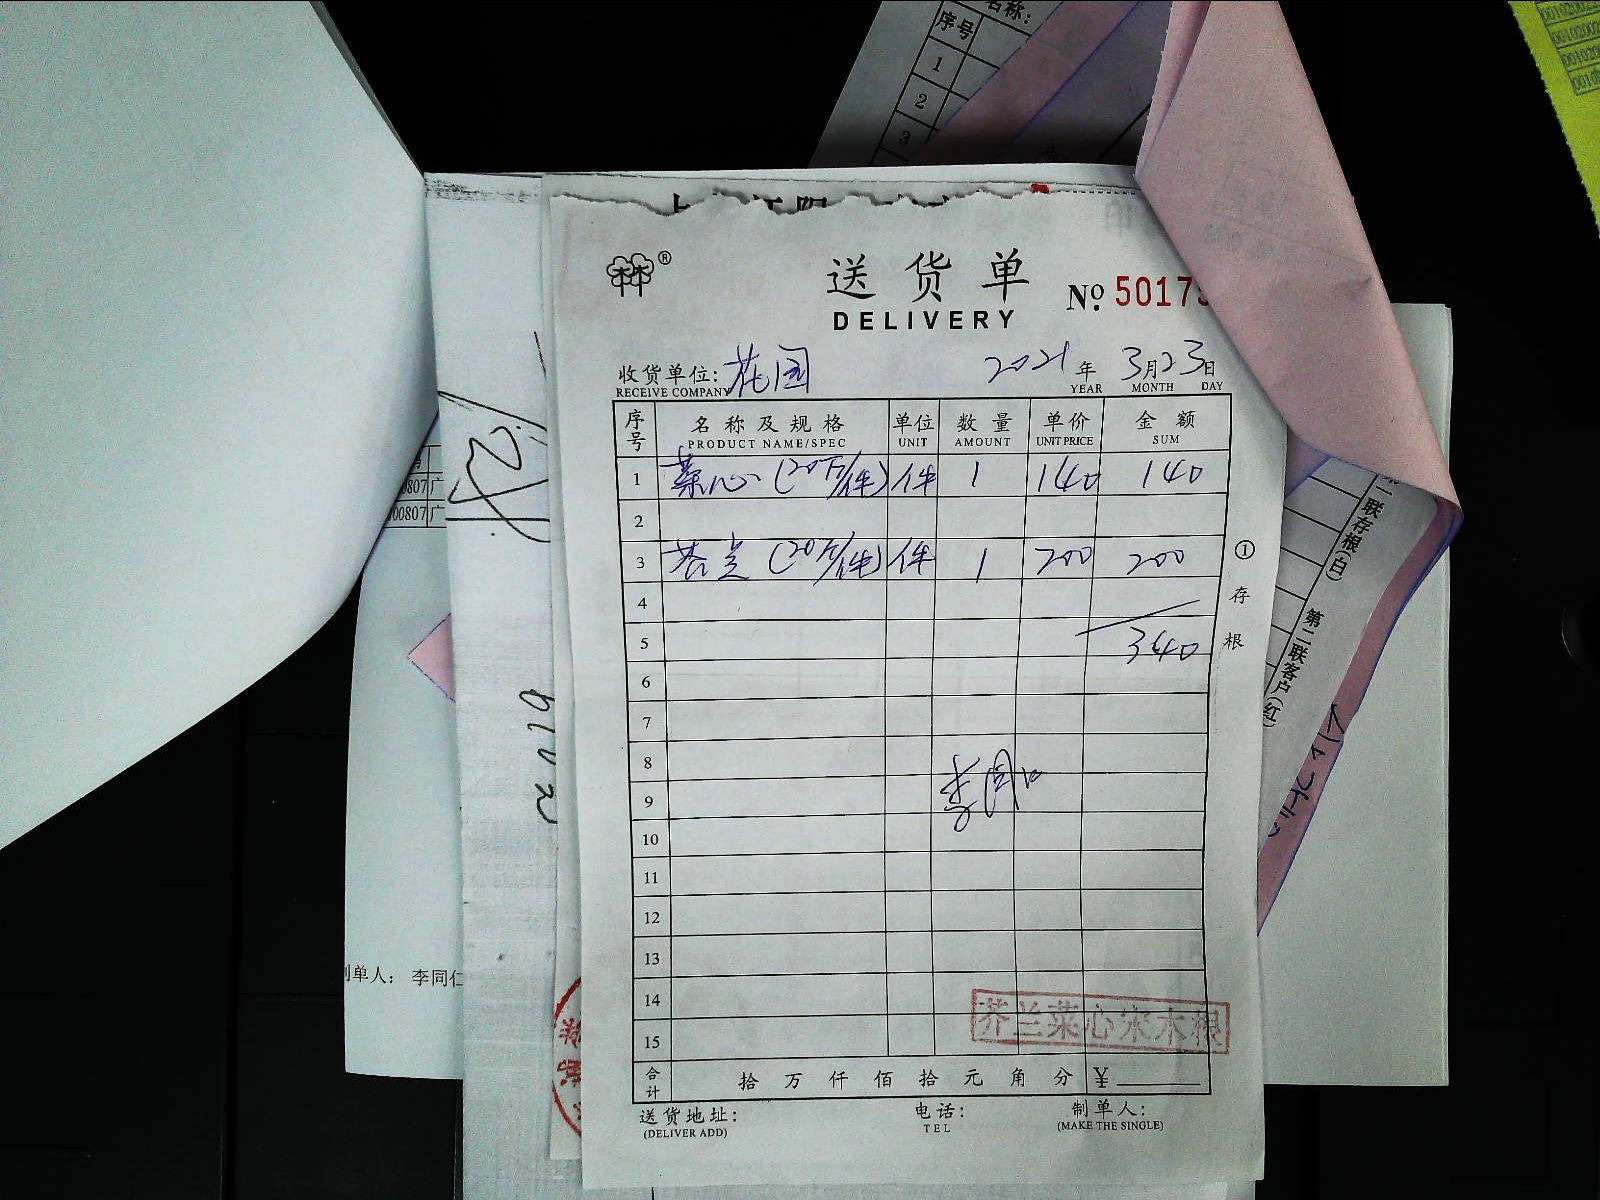 名称:
序号
1
2
3
送货单
DELIVERY
№ 50173
收货单位: 花园 2021年 3月23日
RECEIVE COMPANY YEAR MONTH DAY
序号 名称及规格 单位 数量 单价 金额
PRODUCT NAME/SPEC UNIT AMOUNT UNIT PRICE SUM
1 菜心 (20斤/件) 件 1 140 140
2
3 芥兰 (20斤/件) 件 1 200 200
4
5 340
6
7
8
9
10
11
12
13
14
15
芥兰菜心宋木根
合计 拾万仟佰拾元角分 ¥
送货地址: 电话: 制单人:
(DELIVER ADD) TEL (MAKE THE SINGLE)
①存根
第一联存根(白) 第二联客户(红)
00807 广
00807 广
制单人: 李同仁